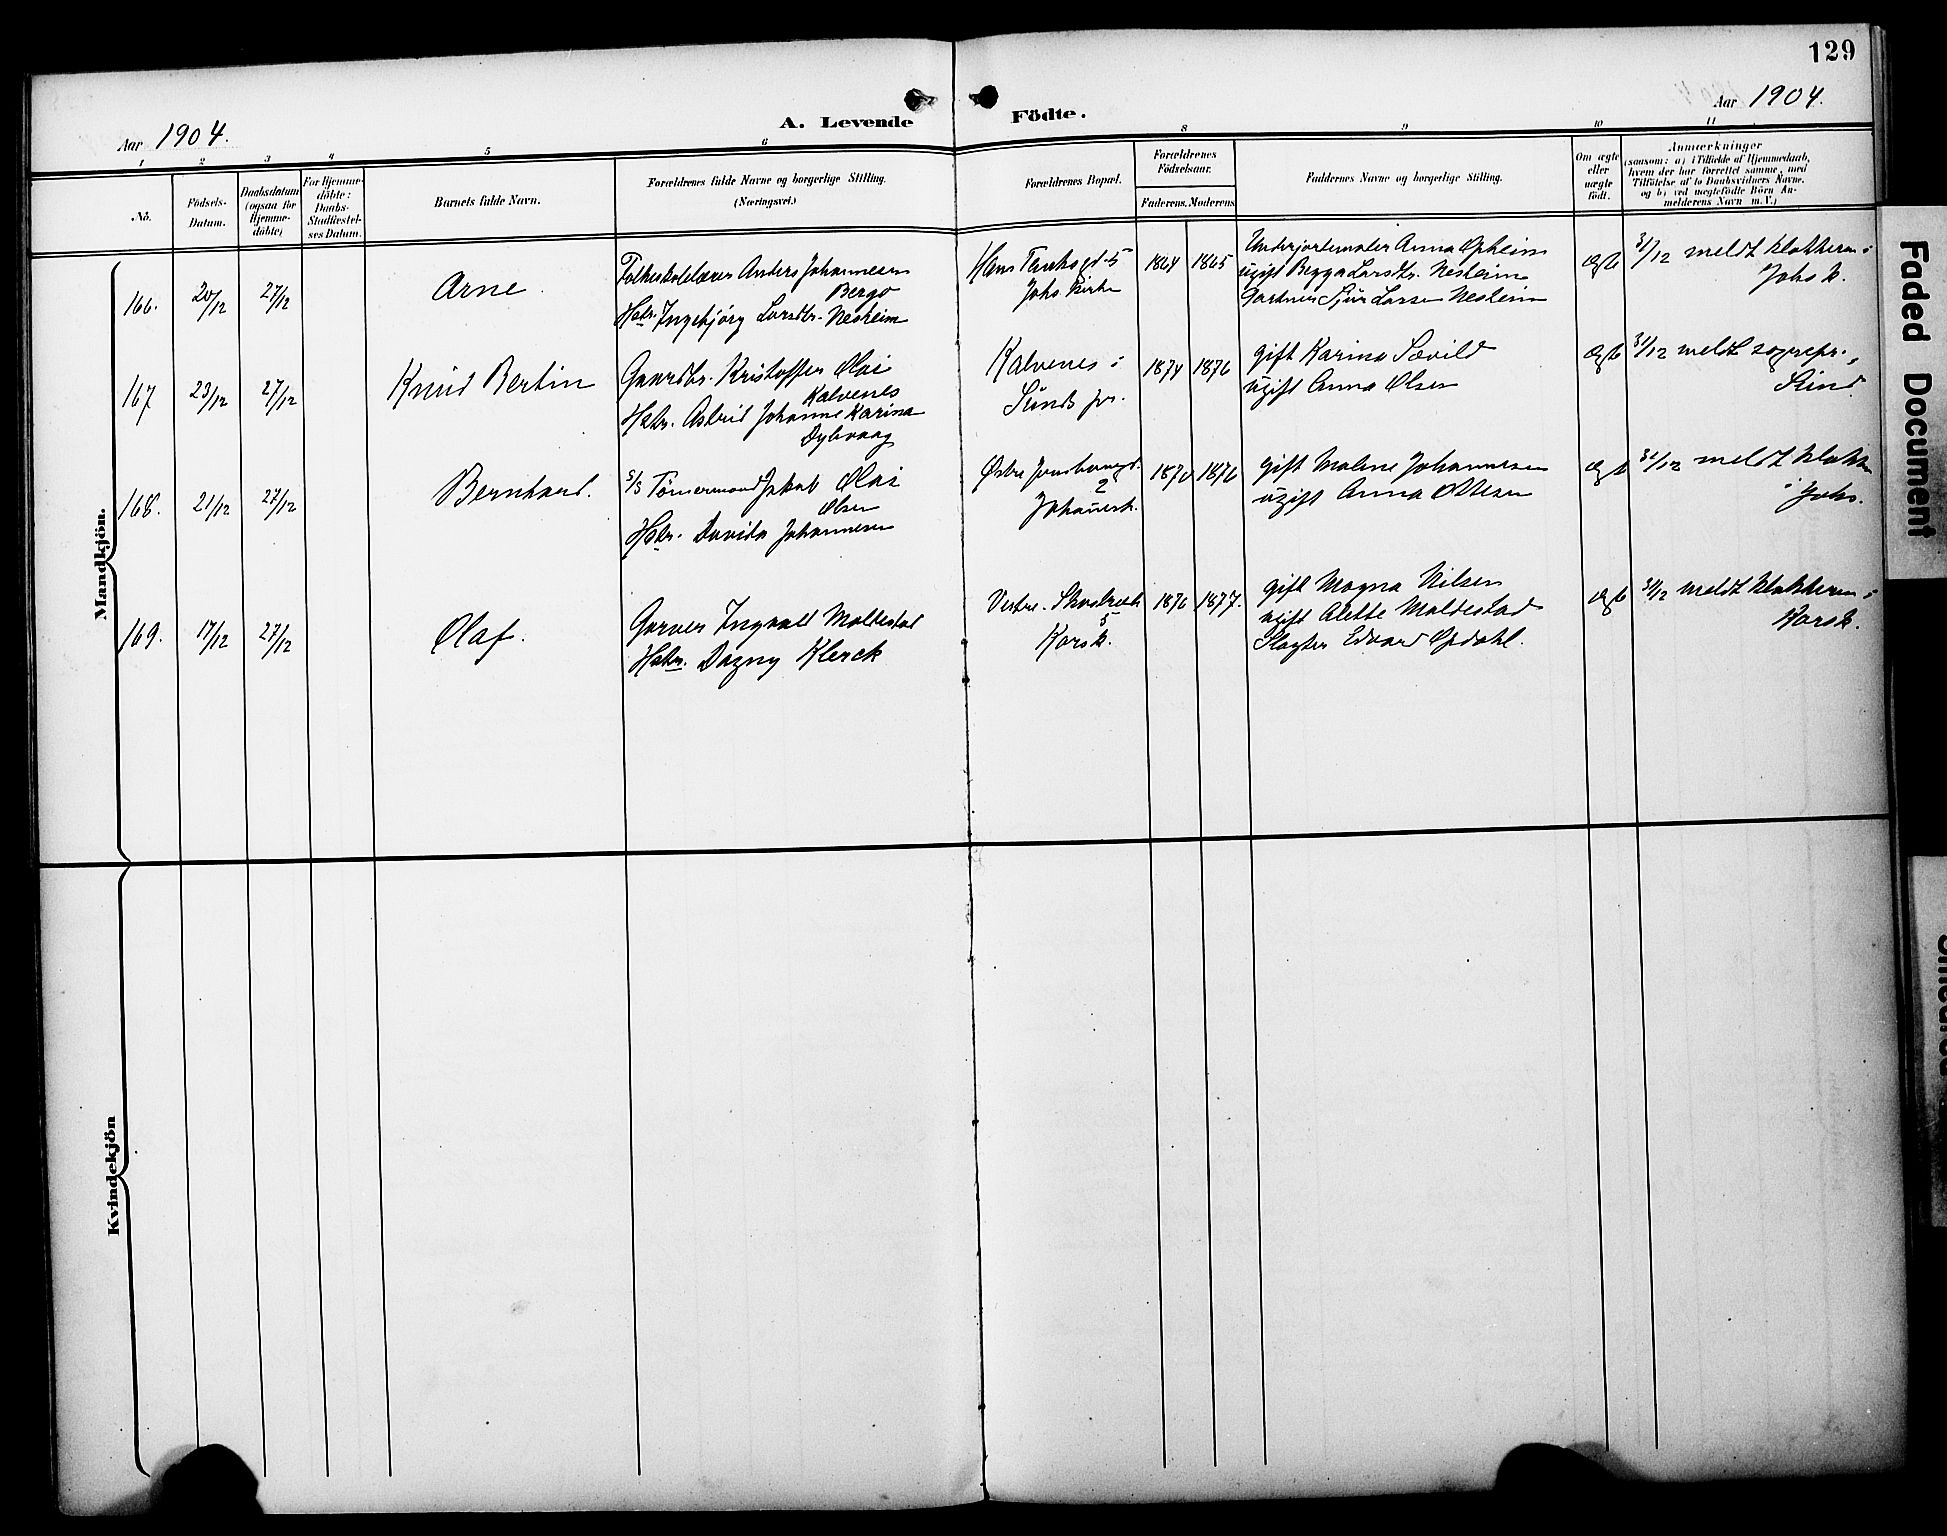 129
Aar 1904.
A. Levende Födte.
Aar 1904.
1 2 3 4 5 6 8 9 10 11
No.
Födsels-Datum.
Daabsdatum (ogsaa for Hjemme-döbte)
For Hjemme-döbte: Daabs-Stadfæstel-ses Datum.
Barnets fulde Navn.
Forældrenes fulde Navne og borgerlige Stilling.
(Næringsvei.)
Forældrenes Bopæl.
Forældrenes Födselsaar.
Faderens. Moderens.
Faddernes Navne og borgerlige Stilling.
Om ægte eller uægte födt.
Anmærkninger
(saasom: a) i Tilfælde af Hjemmedaab,
hvem der har forrettet samme, med
Tilföielse af to Daabsvidners Navne.
og b) ved uægtefödte Börn An-
melderens Navn m. V.)
Mandkjön.
166. 20/12 27/12 Arne.
Folkeskolelærer Anders Johannesen
Bergo
Hstr. Ingebjörg Larsdtr. Nesheim
5
Johs Kirke
1864 1865
Anna Opheim
ugift Larsdtr. Nesheim
Gartner Sjur Larsen Nesheim
ægte
31/12 meldt klokkeren i
Johs k.
167 23/12 27/12 Knud Bertin
Gaardbr. Kristoffer Olai
Kalvenes
Hstr. Astrid Johanne Karina
Dybvaag
Kalvenes i
Sunds pr.
1874 1876
gift Karina Sævild
ugift Anna Olsen
ægte
31/12 meldt sognepr. i
Sund
168. 21/12 27/12 Bernhard.
S/S Tömermand Jakob Olai
Olsen
Hstr. Davida Johannesen
Østre
2
Johannesk.
1870 1876
gift Malene Johannesen
ugift Anna Ottesen
ægte
31/12 meldt klokk
i Johs.
169. 17/12 27/12 Olaf.
Garver Ingvald Moldestad
Hstr. Dagny Klerck
Vestre.
5
Korsk.
1876 1877.
gift Magna Nilsen
ugift Alette Moldestad
Slagter Edvard Opdahl.
ægte
31/12 meldt klokkeren i
Korsk.
Kvindekjön
Faded Document